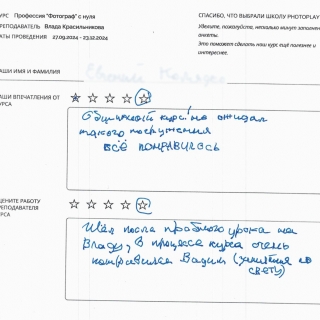 УРС Профессия "Фотограф" с нуля
РЕПОДАВАТЕЛЬ Влада Красильникова
АТЫ ПРОВЕДЕНИЯ 27.09.2024 - 23.12.2024
СПАСИБО, ЧТО ВЫБРАЛИ ШКОЛУ PHOTOPLAY
Уделите, пожалуйста, несколько минут заполнен
анкеты.
Это поможет сделать наш курс ещё полезнее и
интереснее.
АШИ ИМЯ И ФАМИЛИЯ
АШИ ВПЕЧАТЛЕНИЯ ОТ
УРСА
курс не ожидал
такого погружения
всё понравилось
ЦЕНИТЕ РАБОТУ
РЕПОДАВАТЕЛЯ
УРСА
Шёл после пробного урока на
Владу, в процессе курса очень
понравился Вадим (занятия по
свету)